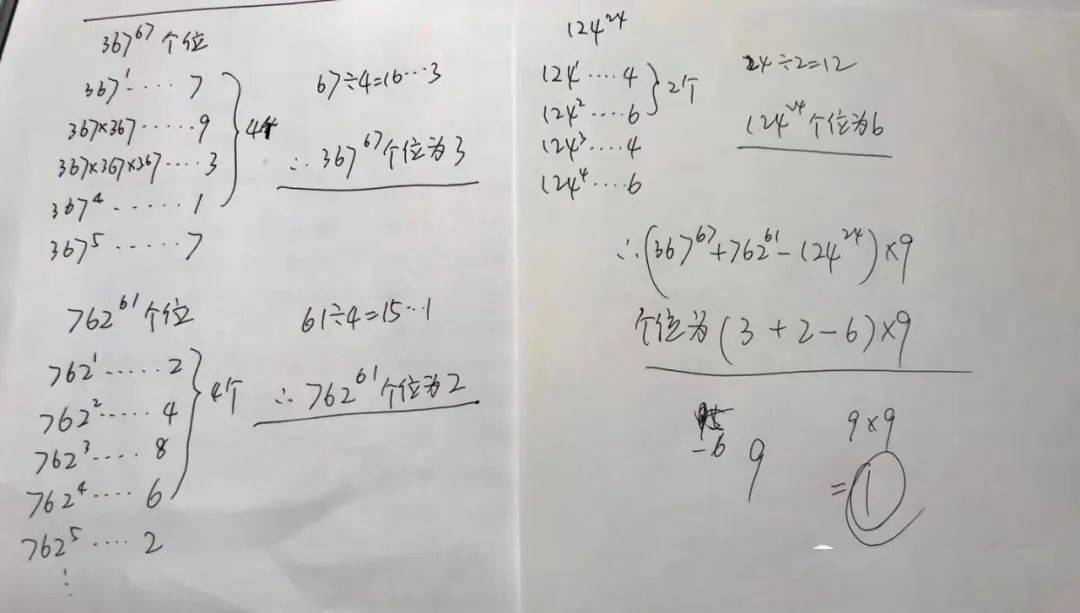 367^67 个位
367^1 ····· 7
367×367 ····· 9
367×367×367 ···· 3
367^4 ······ 1
367^5 ······ 7
4个
67÷4=16···3
∴ 367^67 个位为3
762^61 个位
762^1 ····· 2
762^2 ····· 4
762^3 ···· 8
762^4 ···· 6
762^5 ···· 2
⋮
4个
61÷4=15···1
∴ 762^61 个位为2
124^24
124^1 ···· 4
124^2 ···· 6
124^3 ···· 4
124^4 ···· 6
2个
24÷2=12
124^24 个位为6
∴(367^67+762^61-124^24)×9
个位为(3+2-6)×9
-6
9
9×9
=1